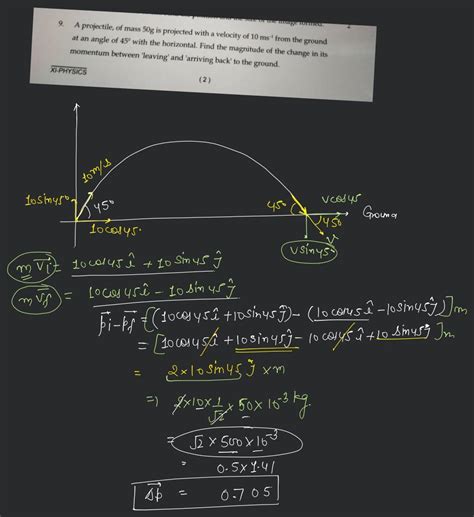 9. A projectile, of mass 50g is projected with a velocity of 10 ms⁻¹ from the ground
at an angle of 45° with the horizontal. Find the magnitude of the change in its
momentum between 'leaving' and 'arriving back' to the ground.
XI-PHYSICS
( 2 )
10m/s
10sin45°
45°
10cos45°
45°
vcos45
45°
Ground
V
Vsin45°
mVi = 10cos45î + 10sin45ĵ
mVf = 10cos45î - 10sin45ĵ
Pi-Pf = [(10cos45î+10sin45ĵ) - (10cos45î-10sin45ĵ)]m
= [10cos45î + 10sin45ĵ - 10cos45î + 10sin45ĵ]m
= 2×10sin45ĵ × m
⇒ 2×10×1/√2 × 50×10⁻³ kg.
= √2 × 500 × 10⁻³
= 0.5×1.41
ΔP = 0.705